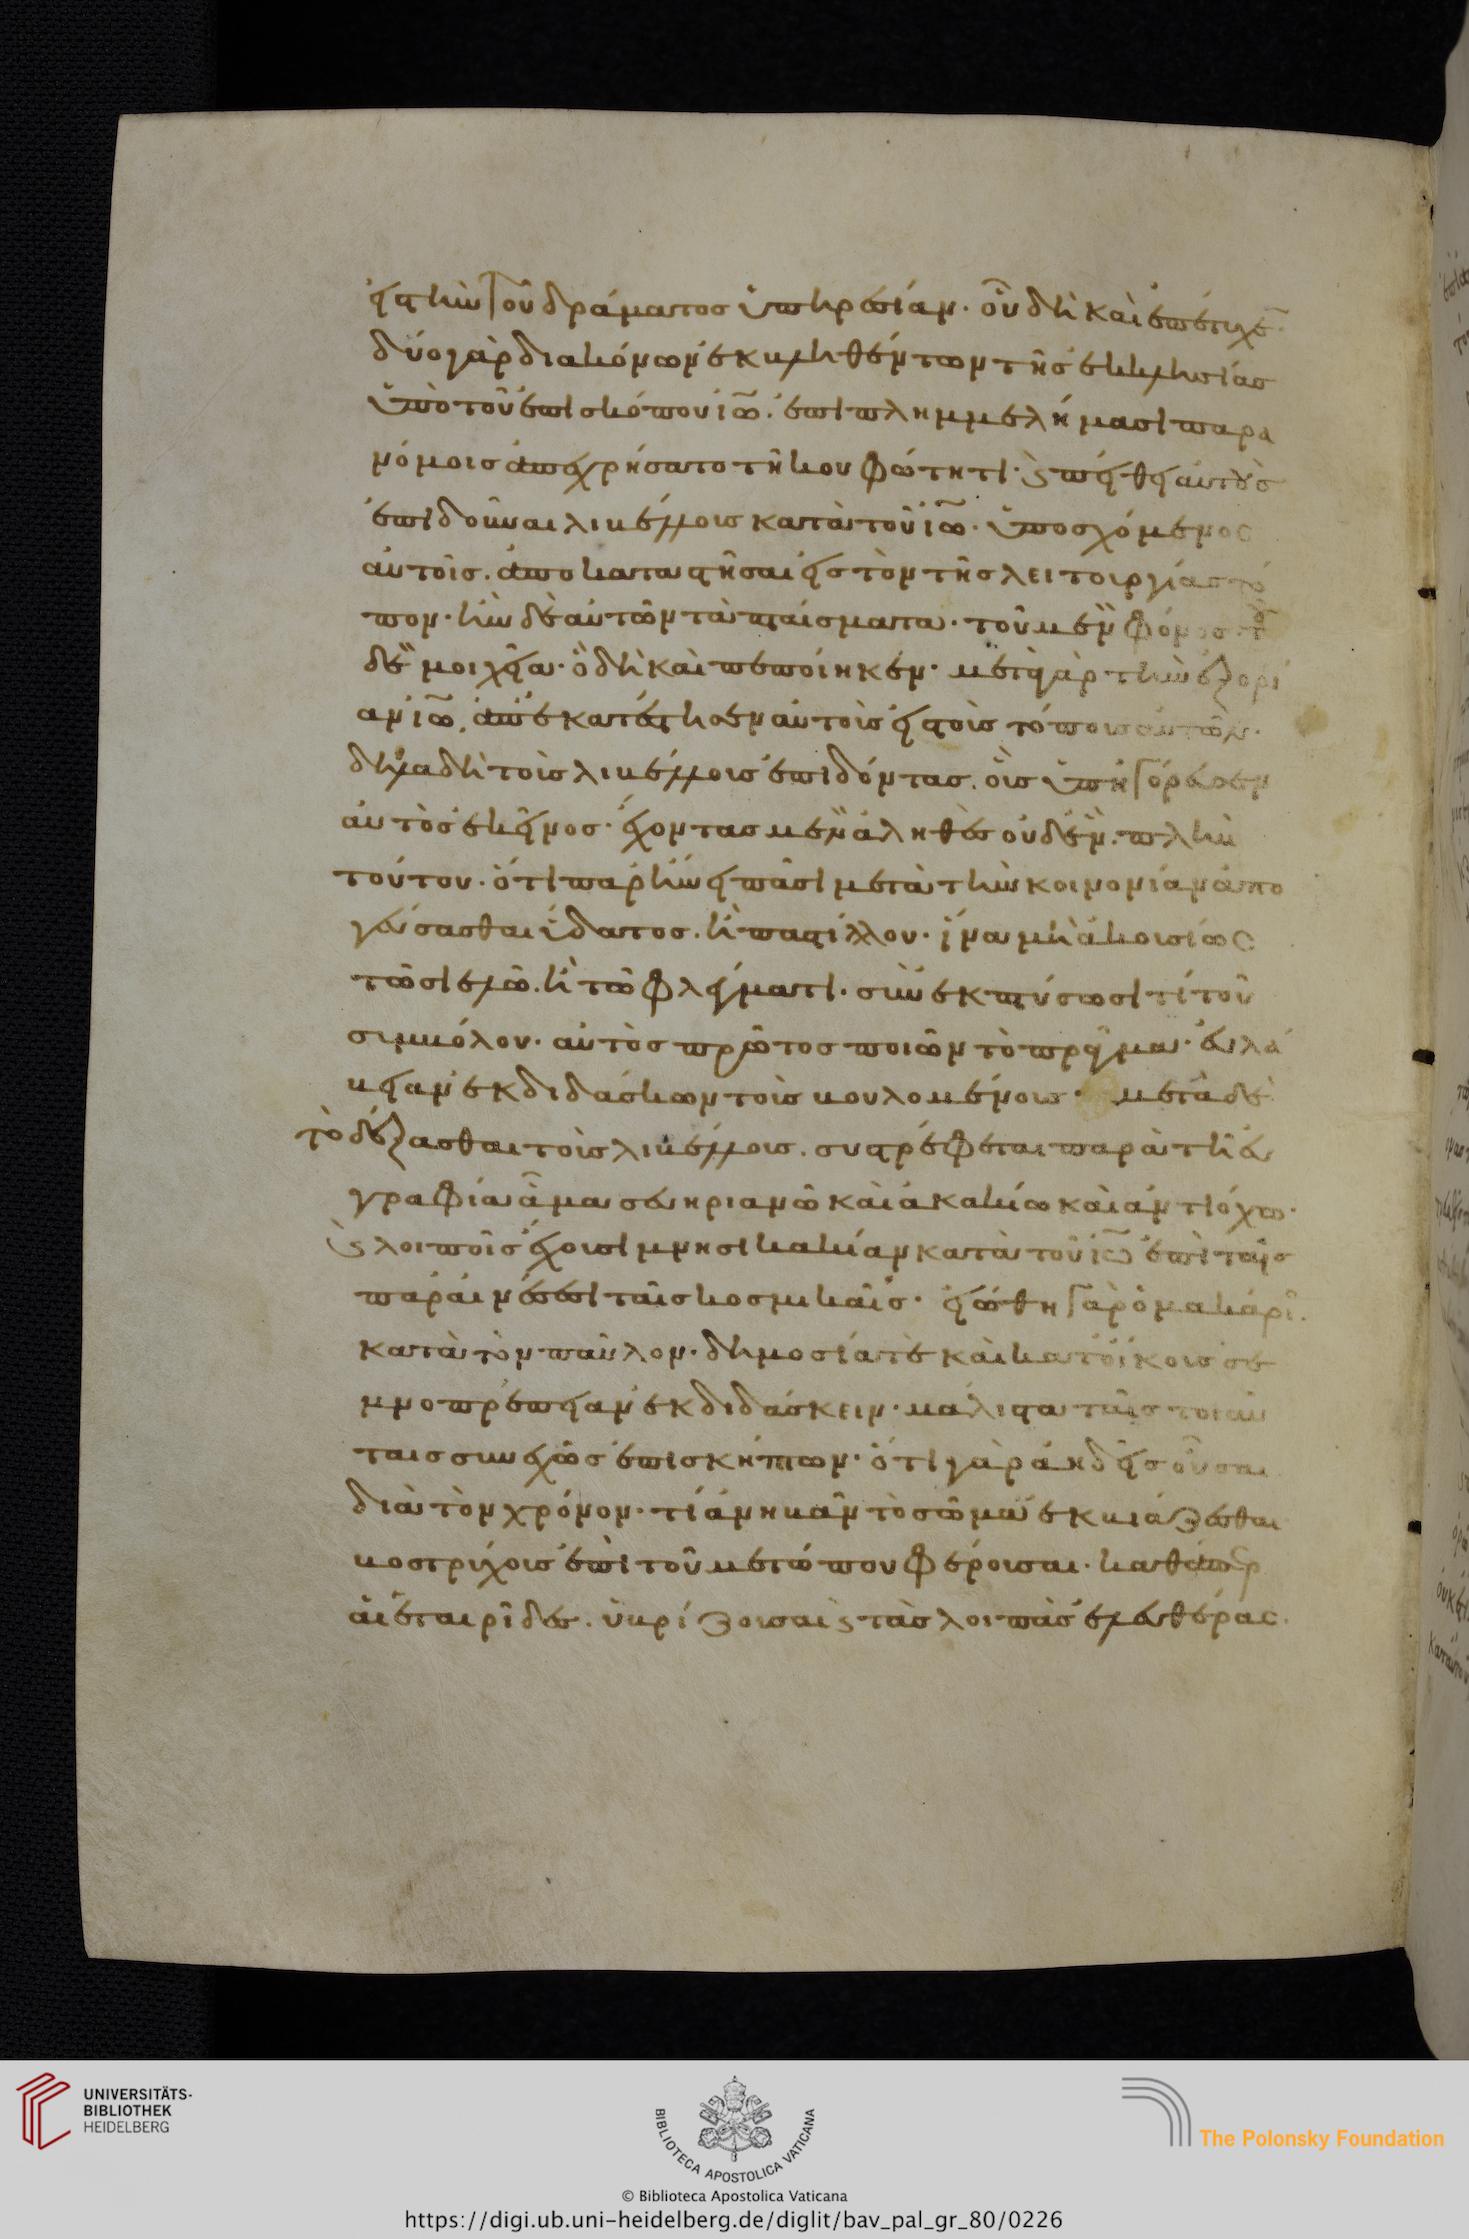 εἰς τὴν τοῦ δράματος ὑπηρεσίαν· οὗ δὴ καὶ ἐπέτυχε·
δύο γὰρ διακόνων ἐκβληθέντων τῆς ἐκκλησίας
ὑπὸ τοῦ ἐπισκόπου ἰω. ἐπὶ πλημμελήμασι παρα
νόμοις ἀπεχρήσατο τῆ κουφότητι· καὶ πείθει αὐτοὺς
ἐπιδοῦναι λιβέλλους κατὰ τοῦ ἰω· ὑποσχόμενος
αὐτοῖς ἀποκαταστῆσαι εἰς τὸν τῆς λειτουργίας τό
πον· ἦν δὲ αὐτῶν τὰ πταίσματα· τοῦ μὲν φόνος· τοῦ
δὲ μοιχεία· ὃ δὴ καὶ πεποίηκεν· μετὰ γὰρ τὴν ἐξορί
αν ἰω. ἀπεκατέστησεν αὐτοὺς εἰς τοὺς τόπους αὐτῶν·
δῆλα δὴ τοὺς λιβέλλους ἐπιδόντας. οὓς ὑπηγόρευσεν
αὐτὸς ἐκεῖνος· ἔχοντας μὲν ἀληθὲς οὐδέν. πλὴν
τούτου· ὅτι παρήνει πᾶσι μετὰ τὴν κοινονίαν ἀπο
γεύσασθαι ὕδατος. ἢ παστίλλου· ἵνα μὴ ἀκουσίως
τῶ σιέλω. ἢ τῶ φλέγματι· συνεκπτύσωσί τι τοῦ
συμβόλου· αὐτὸς πρῶτος ποιῶν τὸ πρᾶγμα· εὐλά
βειαν ἐκδιδάσκων τοὺς βουλομένους· μετὰ δὲ
τὸ δέξασθαι τοὺς λιβέλλους. συστρέφεται παρὰ τῆ εὐ
γραφία ἅμα σευηριανῶ καὶ ἀκακίω καὶ ἀντιόχω·
καὶ λοιποῖς ἔχουσι μνησικακίαν κατὰ τοῦ ἰω ἐπὶ ταῖς
παραινέσεσι ταῖς κοσμικαῖς· εἰώθει γὰρ ὁ μακάρι.
κατὰ τὸν παῦλον· δημοσία τὲ καὶ κατ' οἴκους σε
μνοπρέπειαν ἐκδιδάσκειν· μάλιστα ταῖς τοιαύ
ταις συνεχῶς ἐπισκήπτων· ὅτι γὰρ ἀηδεῖς οὖσαι
διὰ τὸν χρόνον· τί ἀνηβᾶν τὸ σῶμα ἐκβιάζεσθαι
βοστρύχους ἐπὶ τοῦ μετώπου φέρουσαι· καθάπερ
αἱ ἑταιρίδες. ὑβρίζουσαι καὶ τὰς λοιπὰς ἐλευθέρας.
UNIVERSITÄTS-
BIBLIOTHEK
HEIDELBERG
BIBLIOTECA APOSTOLICA VATICANA
The Polonsky Foundation
© Biblioteca Apostolica Vaticana
https://digi.ub.uni-heidelberg.de/diglit/bav_pal_gr_80/0226